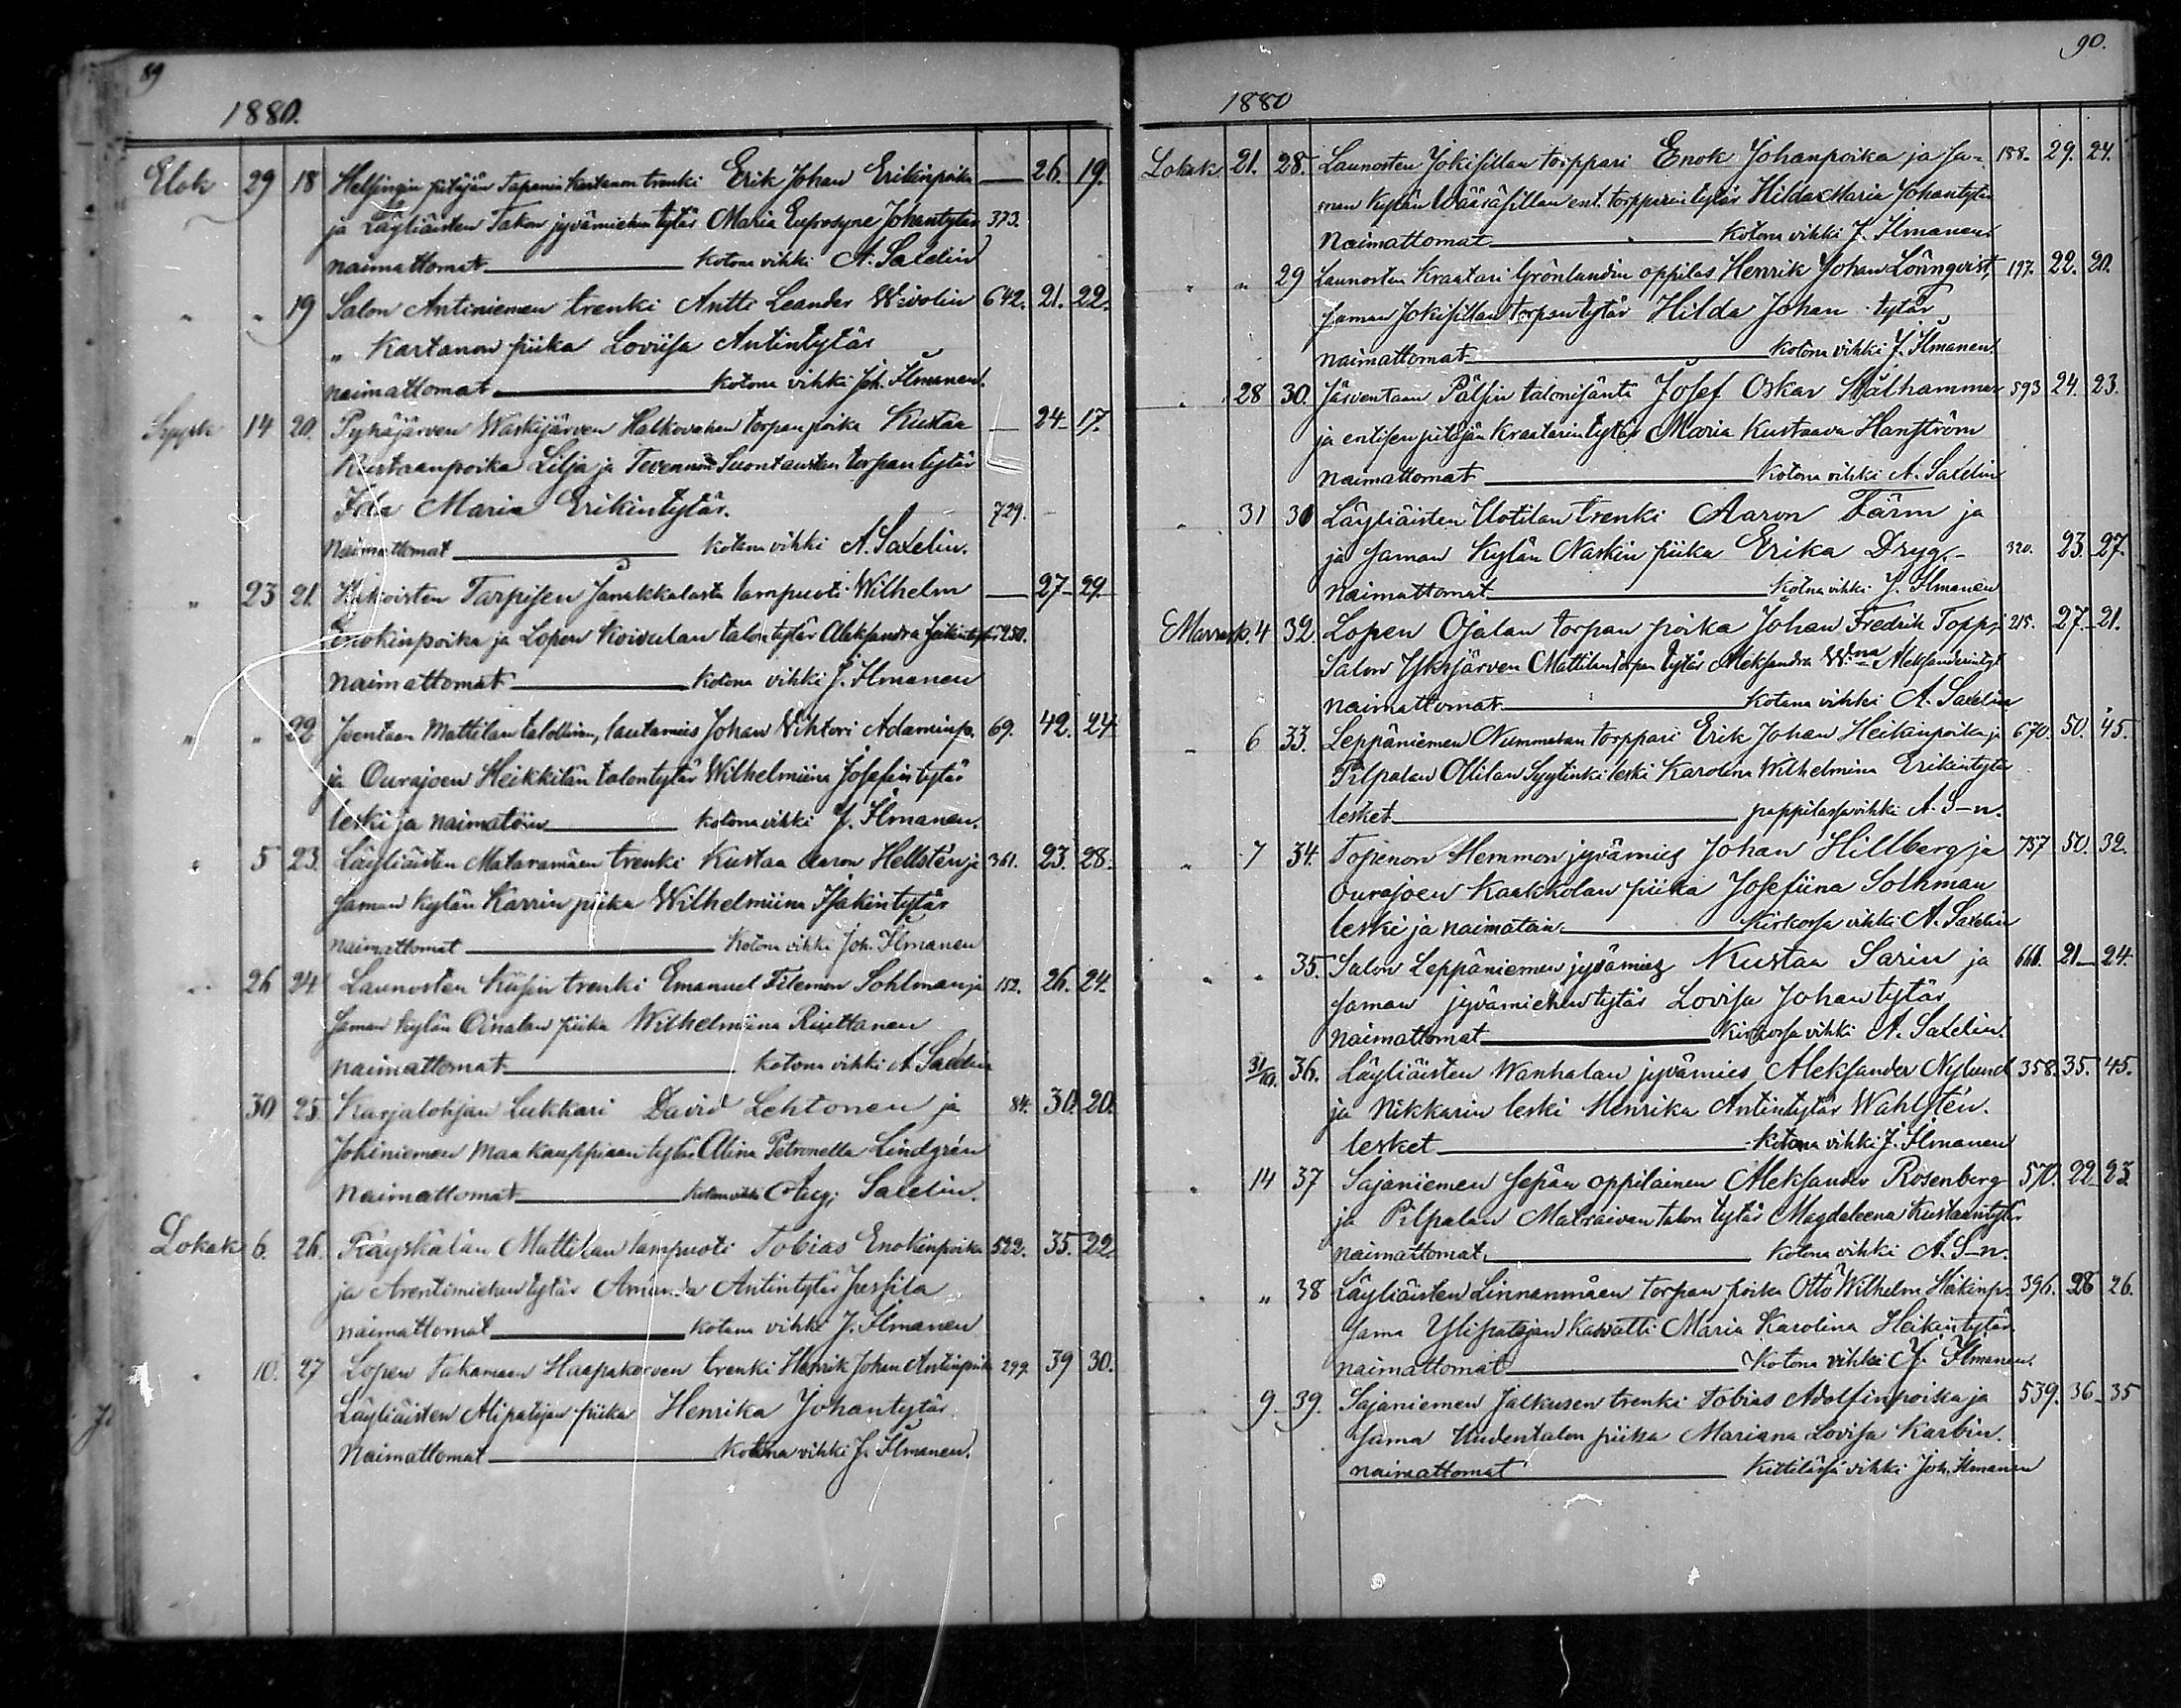 89
1880.
Elok 29 18 Helsingin pitäjän Tapanin kartanon trenki Erik Johan Erikinpoika — 26. 19.
ja Läyliäisten Takon jyvämiehen tytär Maria Euprosyne Johantytär 373.
naimattomat — kotona vihki A. Saxelin
" " 19 Salon Antiniemen trenki Antti Leander Wivolin 642. 21. 22.
" Kartanon piika Loviisa Antintytär
naimattomat — kotona vihki Joh. Ilmanen.
Syysk 14 20. Pyhäjärven Waskijärven Halkovahan torpan poika Kustaa — 24 17.
Kustaanpoika Lilja ja Tevennön Suontaustan torpan tytär
Ida Maria Erikintytär. 729.
Naimattomat — kotona vihki A. Saxelin.
" 23 21. Hakoisten Tarpisen Janakkalasta lampuoti Wilhelm — 27 29
Enokinpoika ja Lopen Koivulan talon tytär Aleksandra 250.
naimattomat — kotona vihki J. Ilmanen
" " 22 Joentaan Mattilan talollinen, lautamies Johan Vihtori Adaminp. 69. 42. 24
ja Ourajoen Heikkilän talontytär Wilhelmiina Josefintytär
leski ja naimatoin — kotona vihki J. Ilmanen.
" 5 23. Läyliäisten Mataramäen trenki Kustaa Aaron Hellstén ja 361. 23. 28.
saman kylän Karrin piika Wilhelmiina Isakintytär
naimattomat — Kotona vihki Joh. Ilmanen
" 26 24. Launosten Kiisin trenki Emanuel Filemon Sohlman ja 152. 26. 24.
saman kylän Oinalan piika Wilhelmiina Riuttanen
naimattomat — kotona vihki A Saxelin
30 25. Karjalohjan lukkari David Lehtonen ja 84. 30. 20.
Jokiniemen maakauppiaan tytär Alina Petronella Lindgrén
Naimattomat — kotona vihki Aug. Saxelin.
Lokak 6. 26. Räyskälän Mattilan lampuoti Tobias Enokinpoika 522. 35. 22.
ja Arentimiehen tytär Amanda Antintytär
naimattomat — kotona vihki J. Ilmanen
" 10. 27 Lopen Takamaan Haapakorven trenki Henrik Johan Antinpoika 299. 39 30.
Läyliäisten Alipatijan piika Henrika Johantytär
Naimattomat — Kotona vihki J. Ilmanen.
90.
1880
Lokak 21. 28. Launosten Jokisillan torppari Enok Johanpoika ja sa- 188. 29. 24.
man kylän Wääräsillan ent. torpparin tytär Hilda Maria Johantytär
Naimattomat — Kotona vihki J. Ilmanen.
" " 29 Launosten Kraatari Grönlundin oppilas Henrik Johan Lönnqvist, 197. 22. 20.
saman Jokisillan torpan tytär Hilda Johan tytär
naimattomat — Kotona vihki J. Ilmanen.
" 28 30. Järventaan Pälsin talonisäntä Josef Oskar Stålhammar 593 24. 23.
ja entisen pitäjän kraatarin tytär Maria Kustaava Hanström
Naimattomat — Kotona vihki A. Saxelin
" 31 31 Läyliäisten Uotilan trenki Aaron Färm ja
ja saman kylän Naskin piika Erika Dryg. 320. 23. 27.
Naimattomat — Kotona vihki J. Ilmanen
Marrask. 4 32. Lopen Ojalan torpan poika Johan Fredrik Topp, 215. 27. 21.
Salon Yksjärven Mattilan torpan tytär Aleksandra W:na Aleksanderintyt
naimattomat — kotona vihki A. Saxelin
" 6 33. Leppäniemen Nummelan torppari Erik Johan Heikinpoika ja 670. 50. 45.
Pilpalan Ollilan Syytinki leski Karolina Wilhelmina Erikintytär
lesket — pappilassa vihki A. S–n.
" 7 34. Topenon Hemmon jyvämies Johan Hillberg ja 757 50. 32.
Ourajoen Kaakkolan piika Josefiina Solhman
leski ja naimatoin — Kirkossa vihki A. Saxelin
" " 35. Salon Leppäniemen jyvämies Kustaa Sarin ja 661. 21 24.
saman jyvämiehen tytär Lovisa Johantytär
naimattomat — Kirkossa vihki A. Saxelin.
31/10. 36. Läyliäisten Wanhalan jyvämies Aleksander Nylund 358. 35. 45.
ja Nikkarin leski Henrika Antintytär Wahlstén.
lesket — kotona vihki J. Ilmanen
" 14 37 Sajaniemen sepän oppilainen Aleksander Rosenberg 570. 22 23
ja Pilpalan Matraivan talon tytär Magdaleena Kustaantytär
naimattomat — kotona vihki A. S–n.
" " 38 Läyliäisten Linnanmäen torpan poika Otto Wilhelm 396. 28 26.
sama Ylipatajan kasvatti Maria Karolina Heikintytär
naimattomat — Kotona vihki J. Ilmanen.
9. 39. Sajaniemen Jalkusen trenki Tobias Adolfinpoika ja 539. 36 35
sama Uudentalon piika Mariana Lovisa Karbin.
naimattomat — Kittilässä vihki Joh. Ilmanen